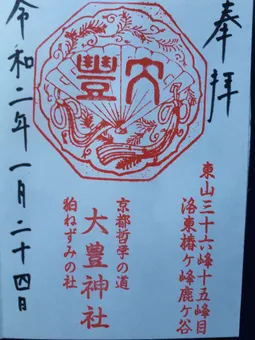 奉拝
東山三十六峰十五峰目
洛東椿ヶ峰鹿ヶ谷
大豐
京都哲学の道
大豊神社
狛ねずみの社
令和二年一月二十四日